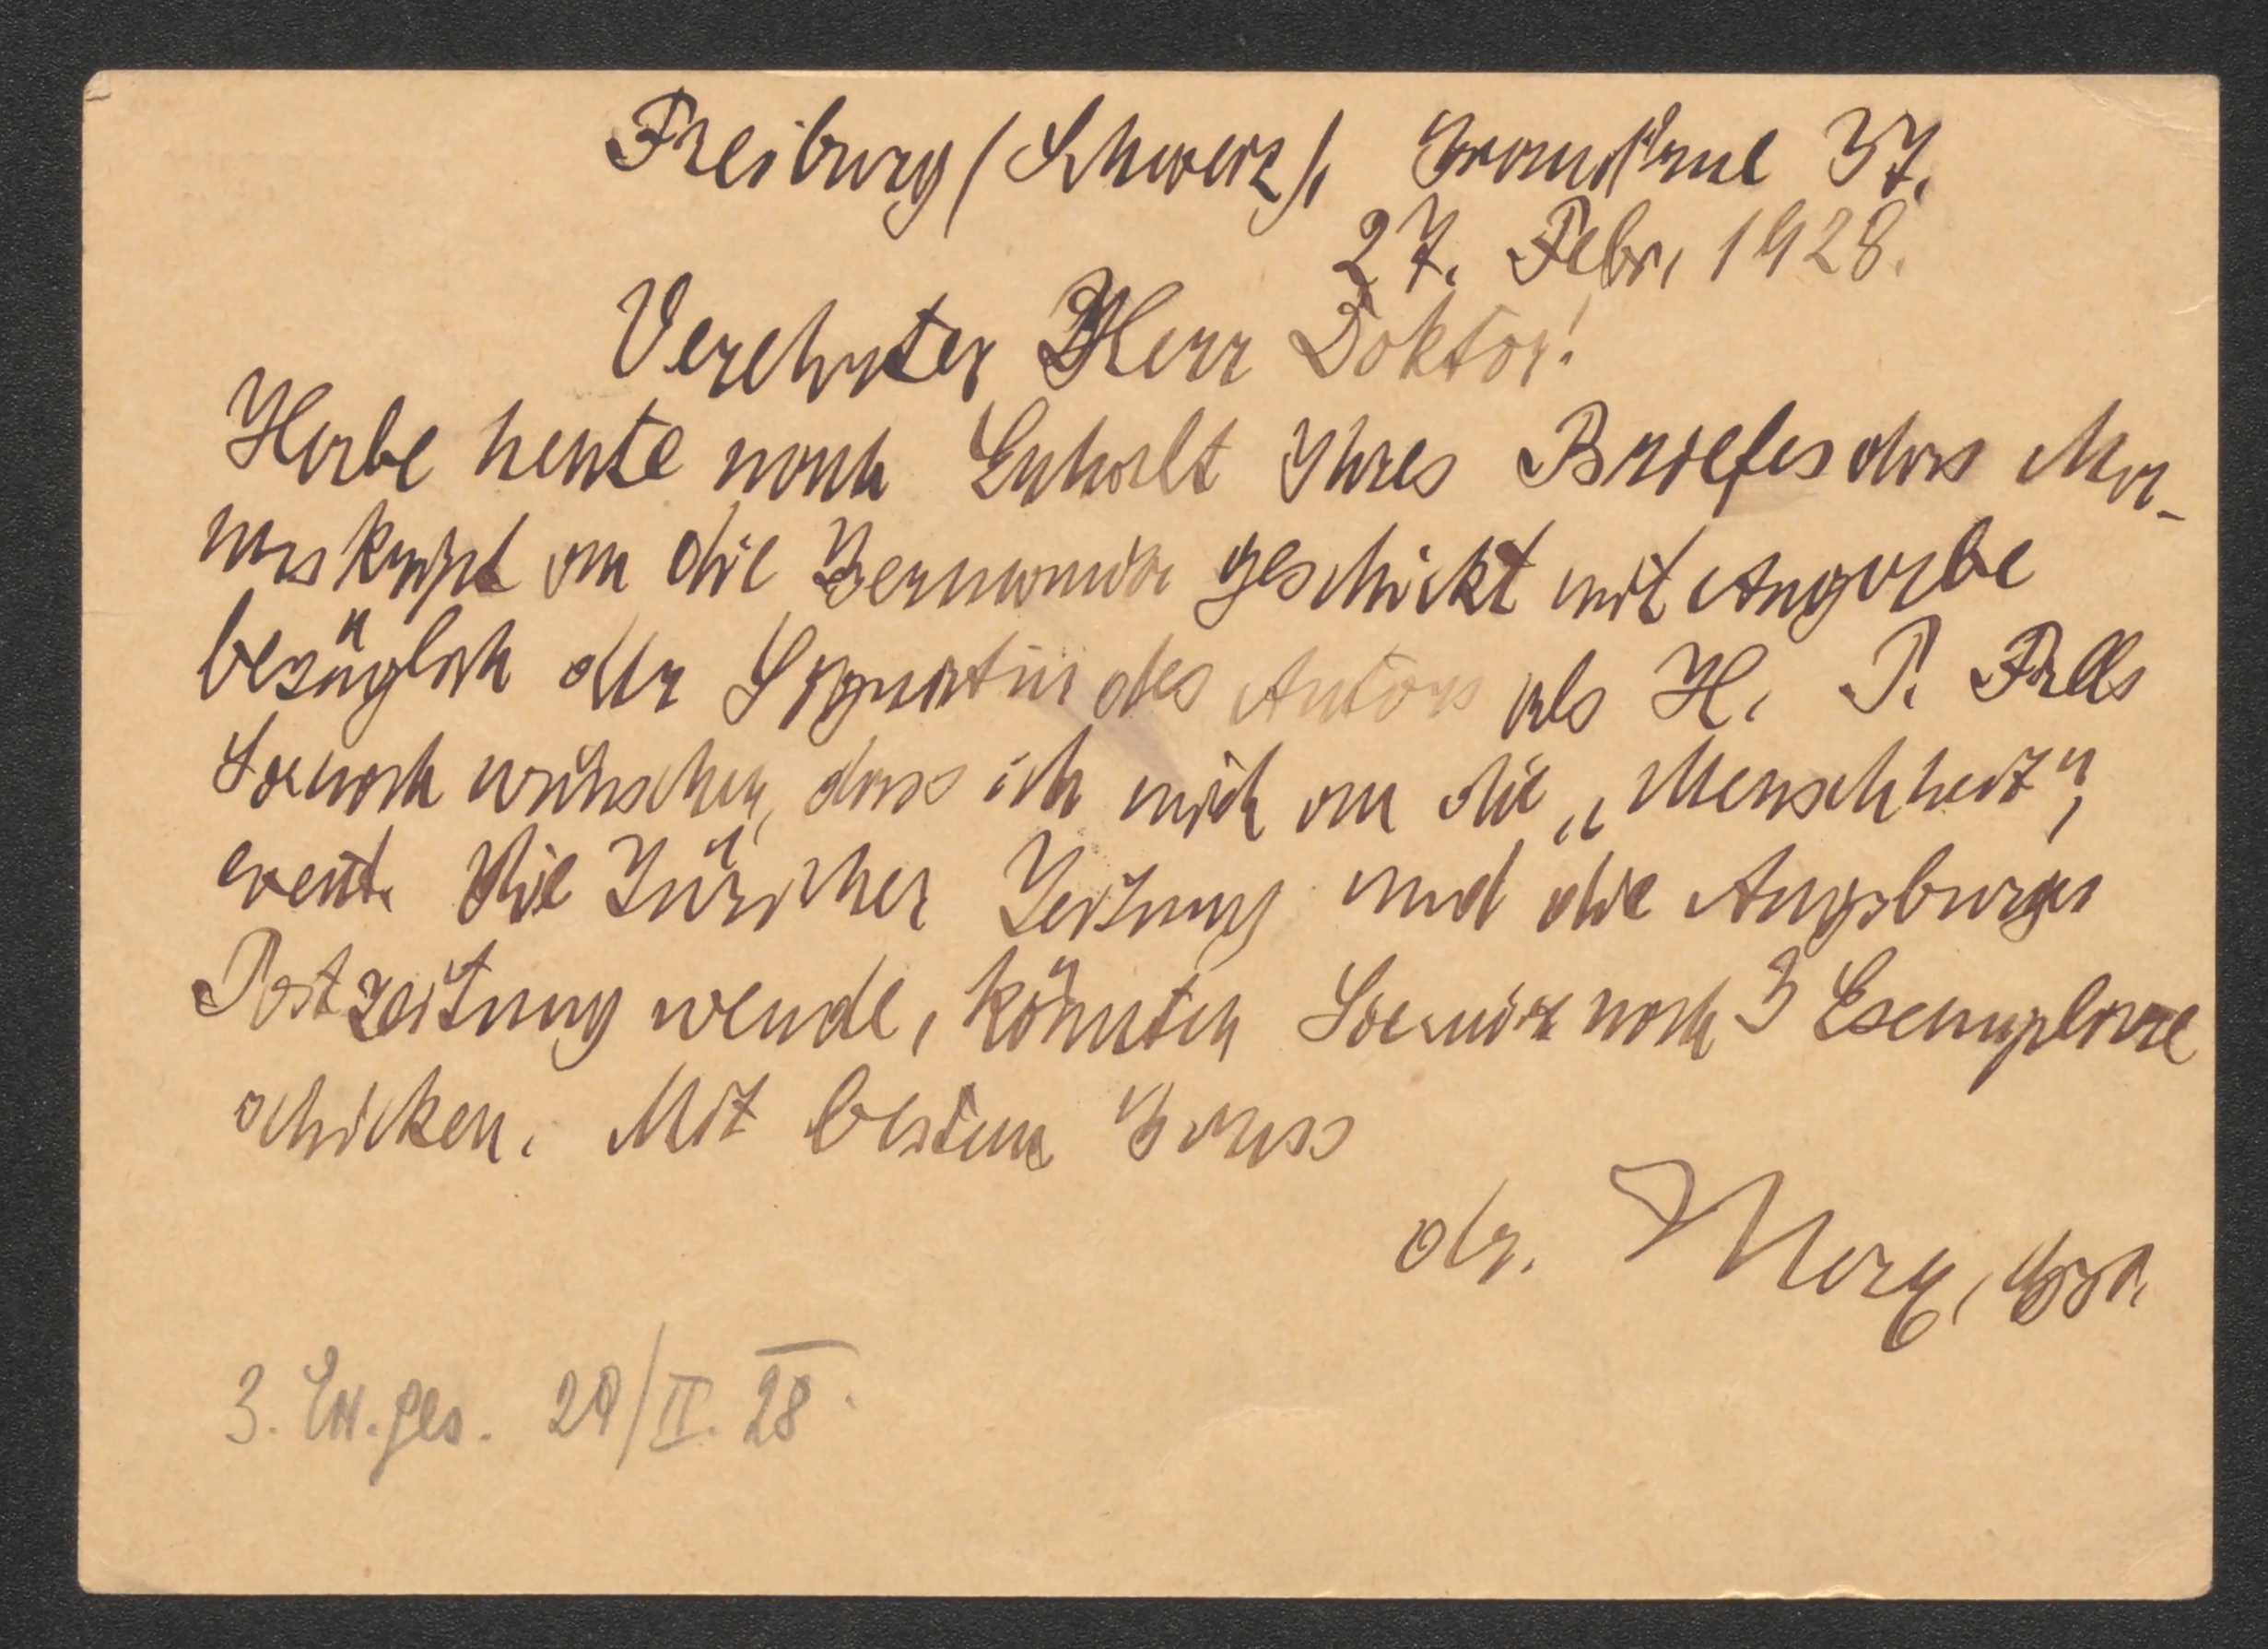 Freiburg (Schweiz), Grand'rue 37.
27. Febr. 1928.
Verehrter Herr Doktor!
Habe heute nach Enhalt Ihres Briefes das Ma-
nuskript an die Germania geschickt mit Angabe
bezüglich der Signatur des Autors als H. P. Falls
Sie noch wünschen, dass ich mich an die „Menschheit",
event. die Züricher Zeitung und die Augsburger
Postzeitung wende, könnten Sie mir noch 3 Exemplare
schicken. Mit bestem Gruss
dr.
3. Ex. ges. 29/II. 28.